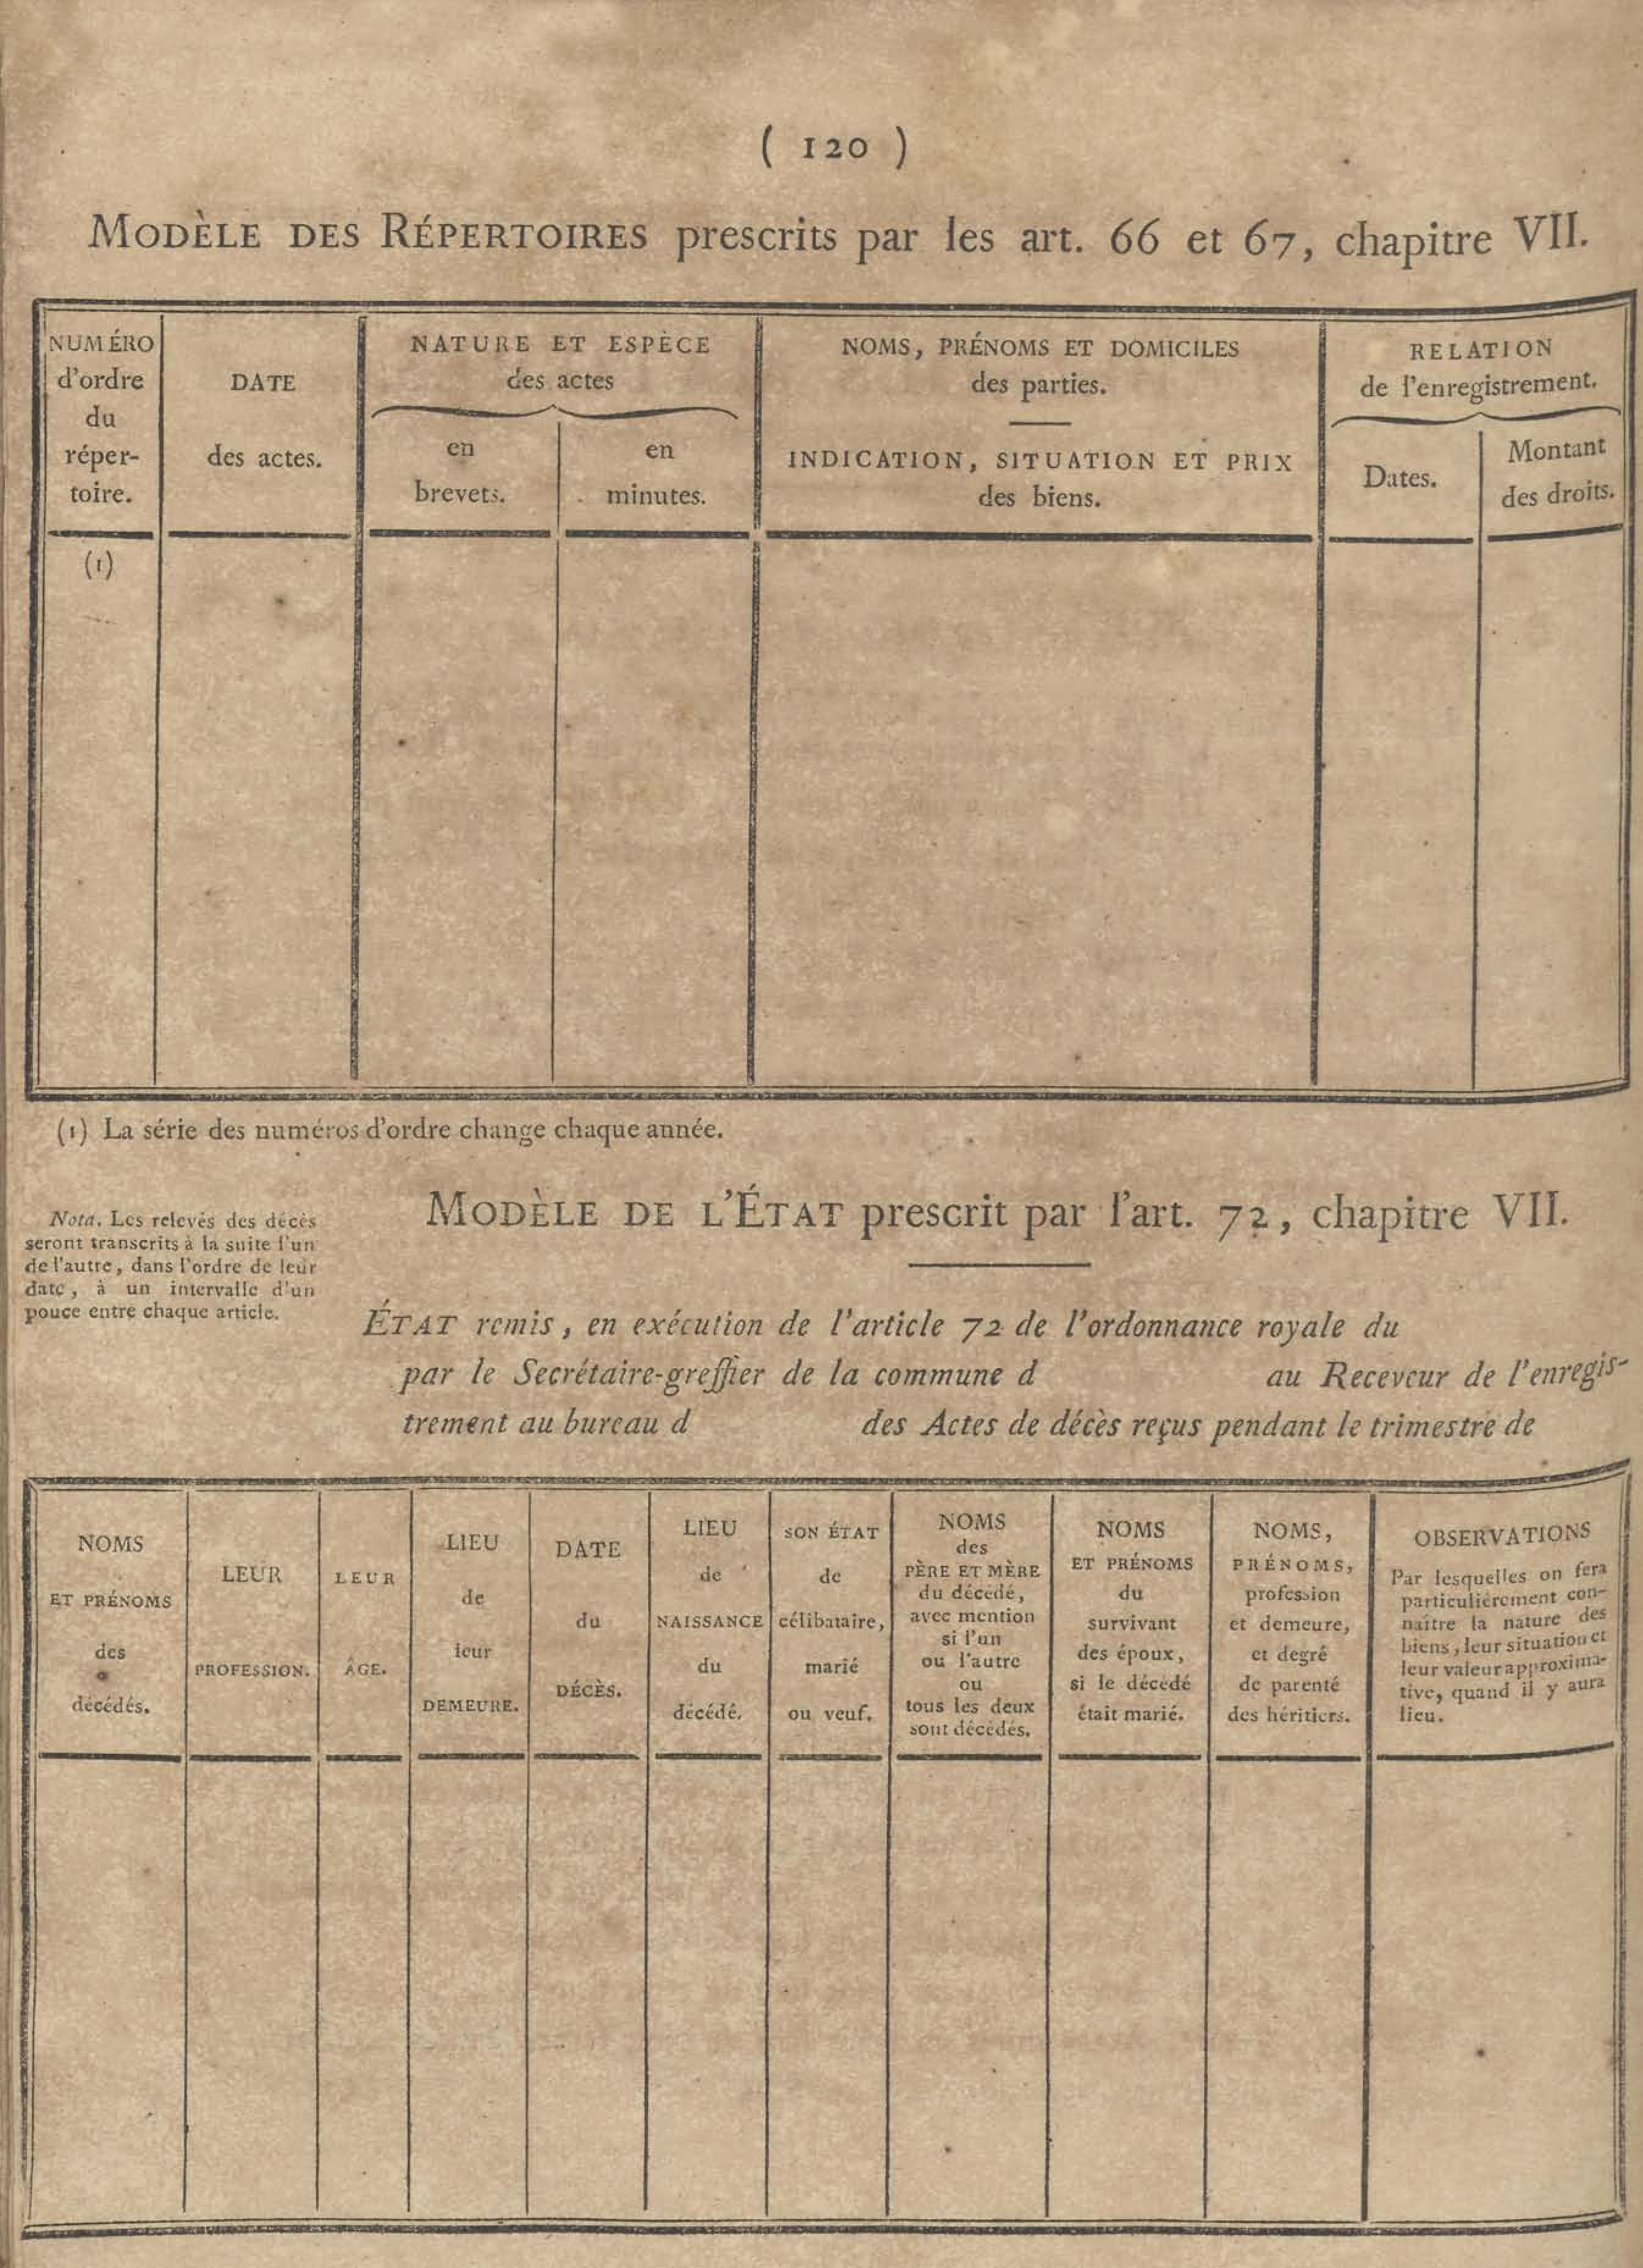 ( 120 )
MODÈLE DES RÉPERTOIRES prescrits par les art. 66 et 67, chapitre VII.
NUMÉRO
d'ordre
du
réper-
toire.
DATE
des actes.
NATURE ET ESPÈCE
des actes
en
brevets.
en
minutes.
NOMS, PRÉNOMS ET DOMICILES
des parties.
INDICATION, SITUATION ET PRIX
des biens.
RELATION
de l'enregistrement.
Dates.
Montant
des droits.
(1)
(1) La série des numéros d'ordre change chaque année.
Nota. Les relevés des décès
seront transcrits à la suite l'un
de l'autre, dans l'ordre de leur
date, à un intervalle d'un
pouce entre chaque article.
MODÈLE DE L'ÉTAT prescrit par l'art. 72, chapitre VII.
ÉTAT remis, en exécution de l'article 72 de l'ordonnance royale du
par le Secrétaire-greffier de la commune d au Receveur de l'enregis-
trement au bureau d des Actes de décès reçus pendant le trimestre de
NOMS
ET PRÉNOMS
des
décédés.
LEUR
PROFESSION.
LEUR
ÂGE.
LIEU
de
leur
DEMEURE.
DATE
du
DÉCÈS.
LIEU
de
NAISSANCE
du
décédé.
SON ÉTAT
de
célibataire,
marié
ou veuf.
NOMS
des
PÈRE ET MÈRE
du décédé,
avec mention
si l'un
ou l'autre
ou
tous les deux
sont décédés.
NOMS
ET PRÉNOMS
du
survivant
des époux,
si le décédé
était marié.
NOMS,
PRÉNOMS,
profession
et demeure,
et degré
de parenté
des héritiers.
OBSERVATIONS
Par lesquelles on fera
particulièrement con-
naître la nature des
biens, leur situation et
leur valeur approxima-
tive, quand il y aura
lieu.